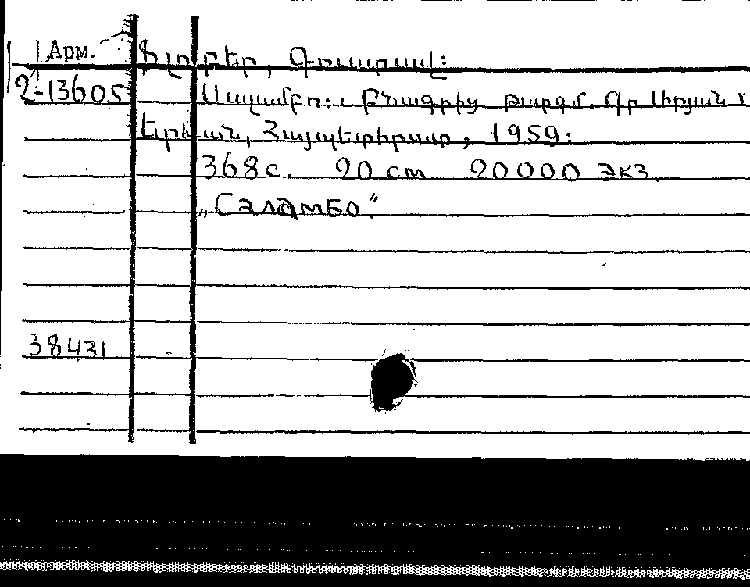 Арм. Ֆլոբեր, Գուստավ:
2-13605 Սալամբո: Բնագրից թարգմ.
Երևան, Հայպետհրատ, 1959:
368с. 20 cm 20000 экз.
„Саламбо."
38431